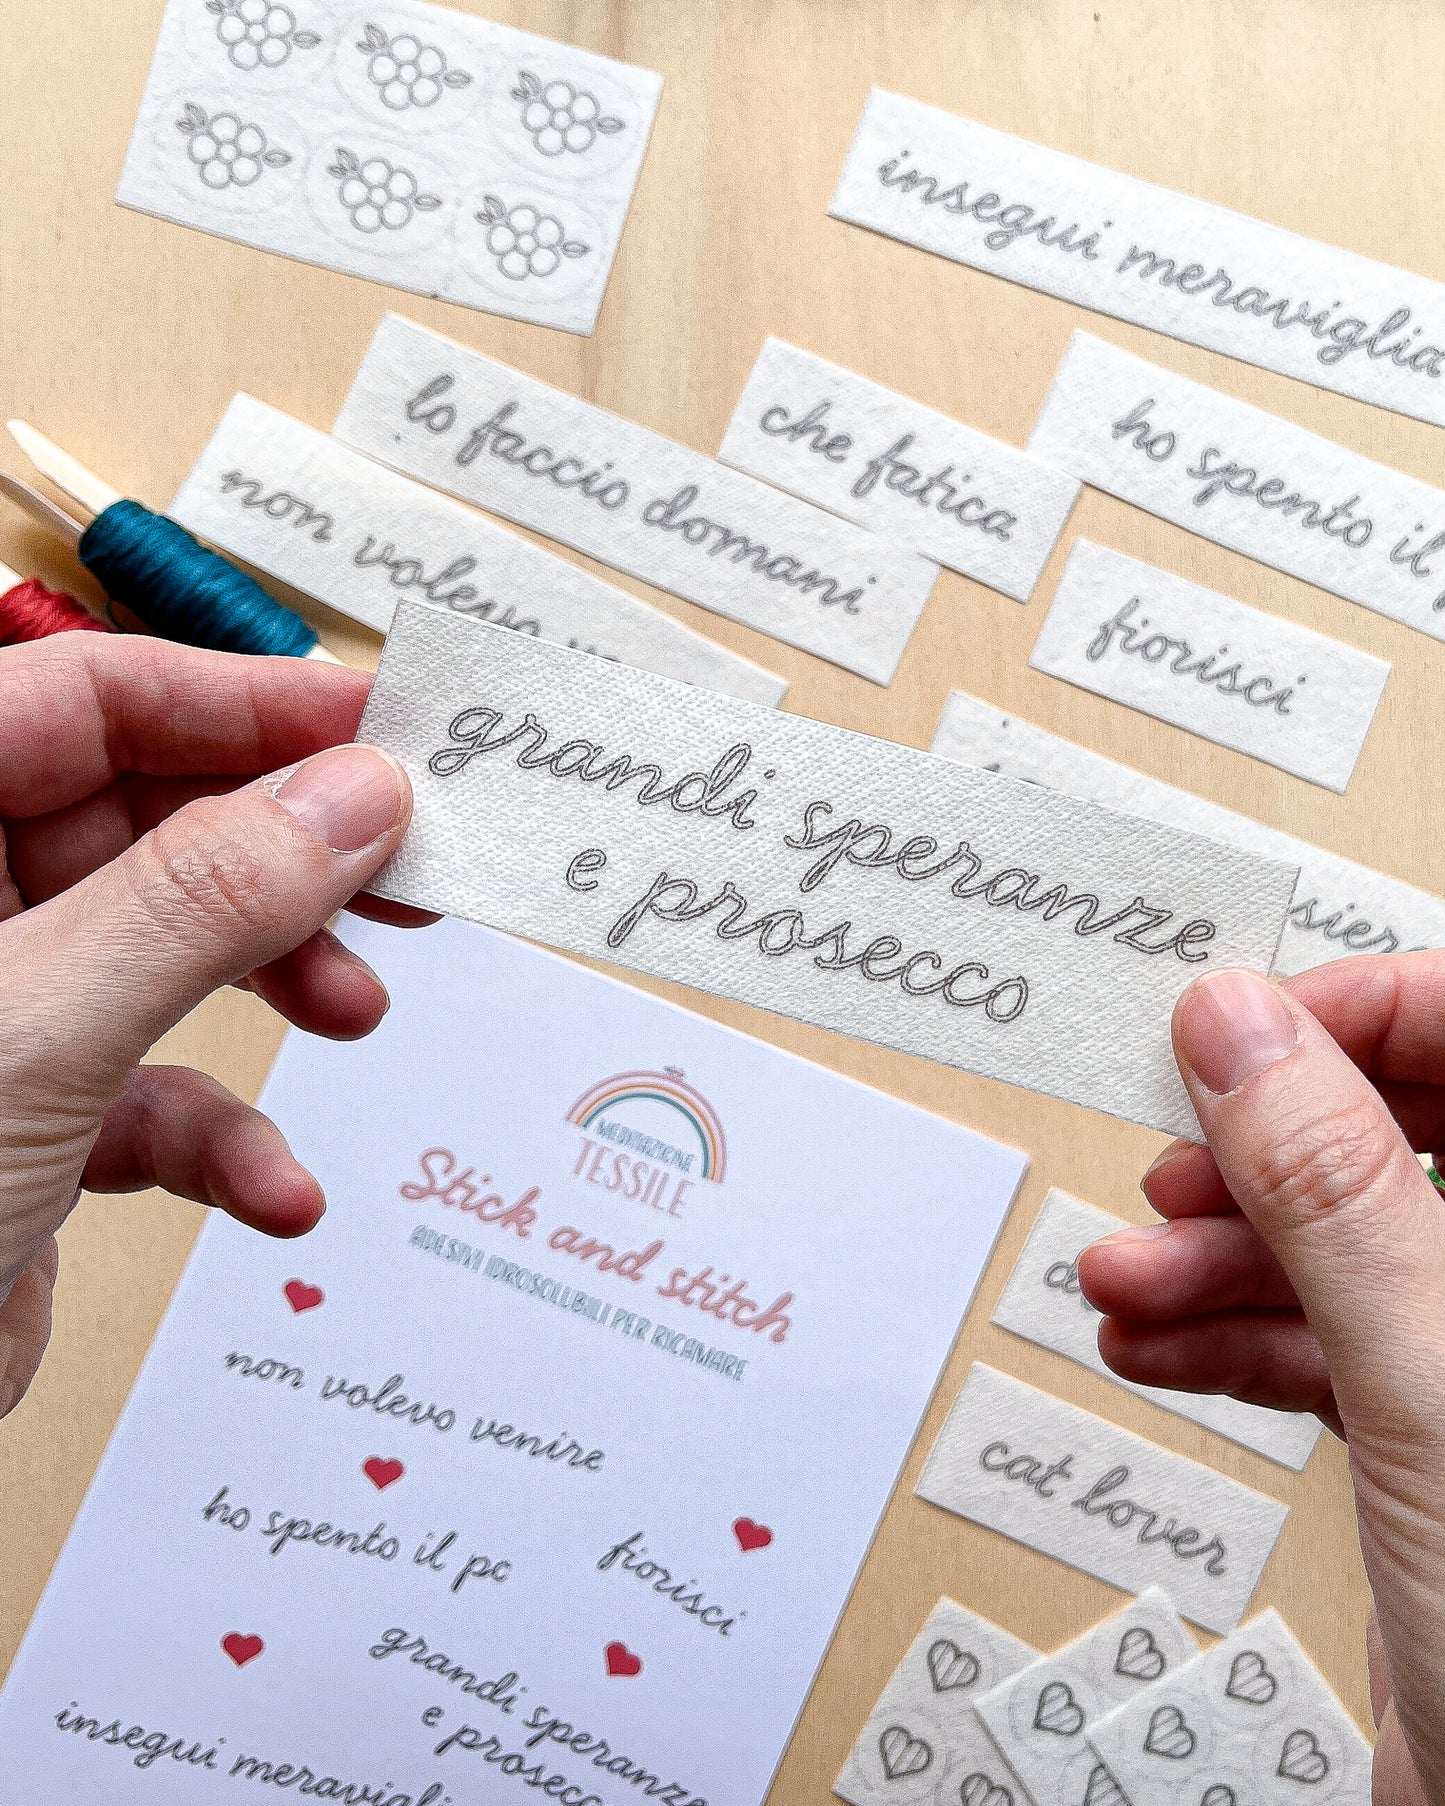 insegui meraviglia
lo faccio domani
che fatica
ho spento il
non volevo
fiorisci
grandi speranze
e prosecco
MEDITAZIONE
TESSILE
Stick and stitch
ADESIVI IDROSOLUBILI PER RICAMARE
non volevo venire
ho spento il pc
fiorisci
grandi speranze
e prosecco
insegui meraviglia
cat lover